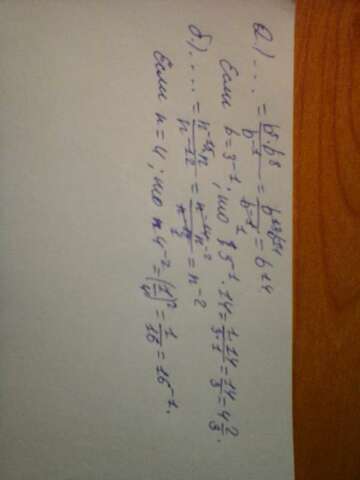 а) .... = b⁵·b⁸ / b⁻¹ = b¹³ / b⁻¹ = b¹⁴
Если b=3⁻¹, то 3⁻¹·14 = 1·14/3·1 = 14/3 = 4 2/3.
б) .... = n⁻¹² = n⁻² 
Если n=4; то 4⁻² = (1/4)² = 1/16 = 16⁻¹.